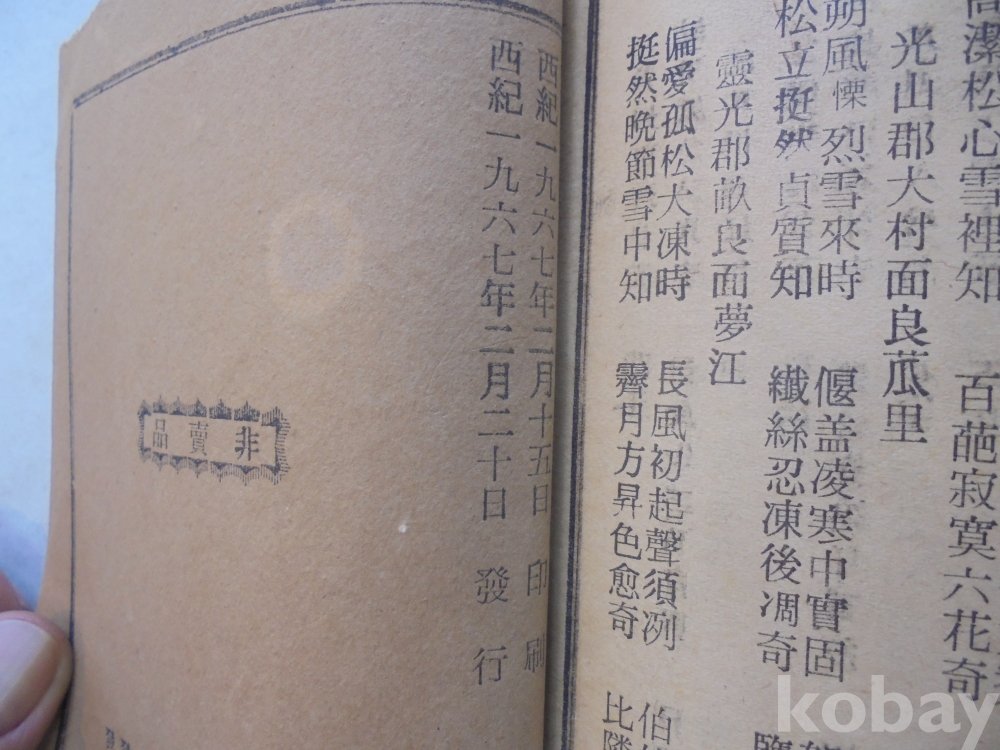 潔松心雪裡知 百葩寂寞六花奇
光山郡大村面良苽里
朔風慄烈雪來時 偃盖凌寒中實固
松立挺然貞質知 纖絲忍凍後凋奇
靈光郡畝良面夢江
偏愛孤松大凍時 長風初起聲須冽 伯
挺然晩節雪中知 霽月方昇色愈奇 比隣
西紀一九六七年二月十五日 印刷
西紀一九六七年二月二十日 發行
非賣品
kobay